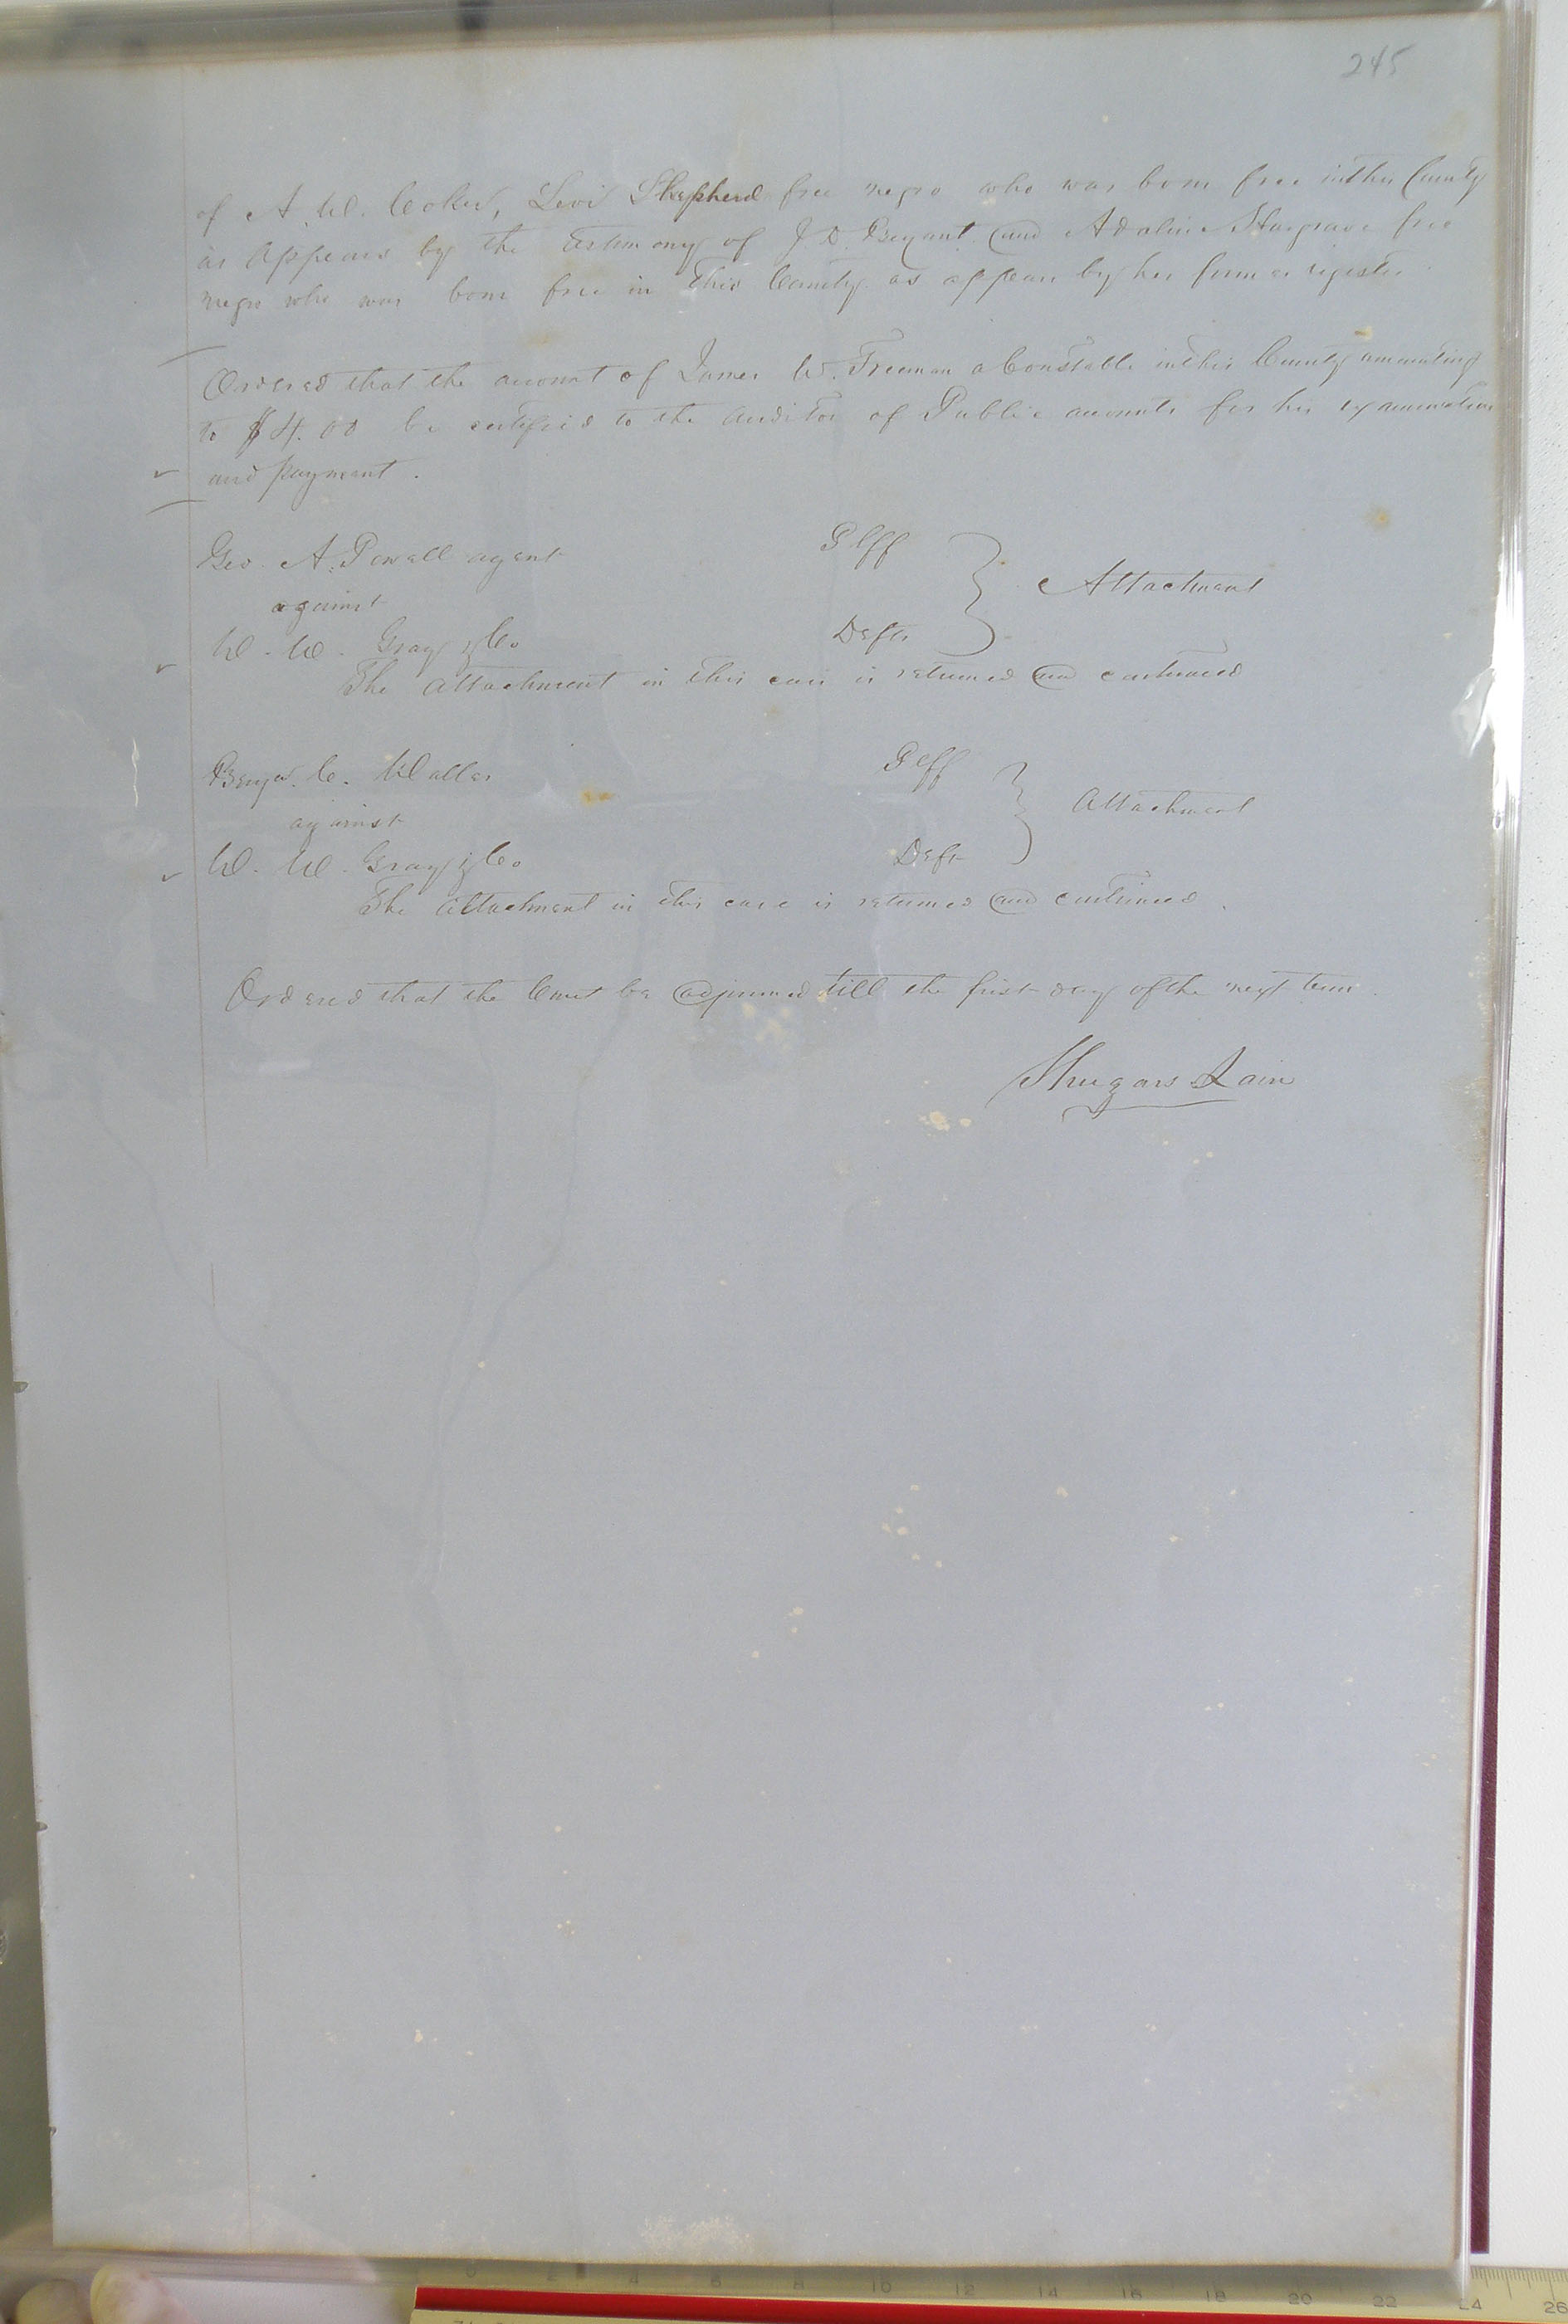 245
of A. W. Coker, Levi Shepherd free negro who was born free in this County
as appears by the testimony of J. D. Bryant and Adaline Hargrave free
negro who was born free in this County as appears by her former register.
Ordered that the account of James W. Freeman a Constable in this County amounting
to $4.00 be certified to the Auditor of Public accounts for his examination
and payment.
Geo. A. Powell agent Plff
against Attachment
W. W. Gray & Co Defts
The attachment in this case is returned and continued
Benja. C. Waller Plff
against Attachment
W. W. Gray & Co Defts
The attachment in this case is returned and continued.
Ordered that the Court be adjourned till the first day of the next term.
0 2 4 6 8 10 12 14 16 18 20 22 24 26